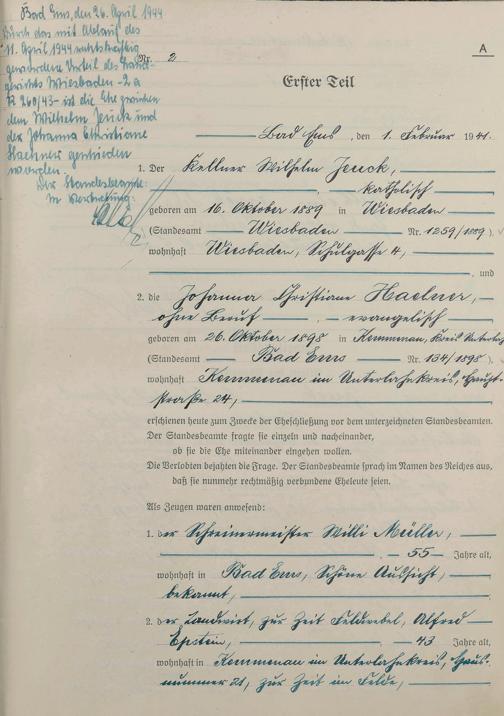 Bad Ems, den 26. April 1944
Durch das mit Ablauf des
11. April 1944 rechtskräftig
gewordene Urteil des Land-
gerichts Wiesbaden - 2 a
R 260/43 - ist die Ehe zwischen
dem Wilhelm Jeuck und
der Johanna Christiane
Haehner geschieden
worden.
Der Standesbeamte:
In Vertretung:
A
Nr. 2
Erster Teil
Bad Ems, den 1. Februar 1941.
1. Der Kellner Wilhelm Jeuck,
, - katholisch
geboren am 16. Oktober 1889 in Wiesbaden
(Standesamt Wiesbaden Nr. 1259/1889).
wohnhaft Wiesbaden, Schulgasse 4,
, und
2. die Johanna Christiane Haehner,
ohne Beruf , - evangelisch
geboren am 26. Oktober 1898 in Kemmenau, Kreis Unterlahn
(Standesamt Bad Ems Nr. 134/1898).
wohnhaft Kemmenau im Unterlahnkreis, Haupt-
straße 24,
erschienen heute zum Zwecke der Eheschließung vor dem unterzeichneten Standesbeamten.
Der Standesbeamte fragte sie einzeln und nacheinander,
ob sie die Ehe miteinander eingehen wollen.
Die Verlobten bejahten die Frage. Der Standesbeamte sprach im Namen des Reiches aus,
daß sie nunmehr rechtmäßig verbundene Eheleute seien.
Als Zeugen waren anwesend:
1. der Schreinermeister Willi Müller,
, - 55 Jahre alt,
wohnhaft in Bad Ems, Schöne Aussicht,
bekannt,
2. der Landwirt, zur Zeit Feldwebel, Alfred
Epstein, - 43 Jahre alt,
wohnhaft in Kemmenau im Unterlahnkreis, Haus-
nummer 21, zur Zeit im Felde,